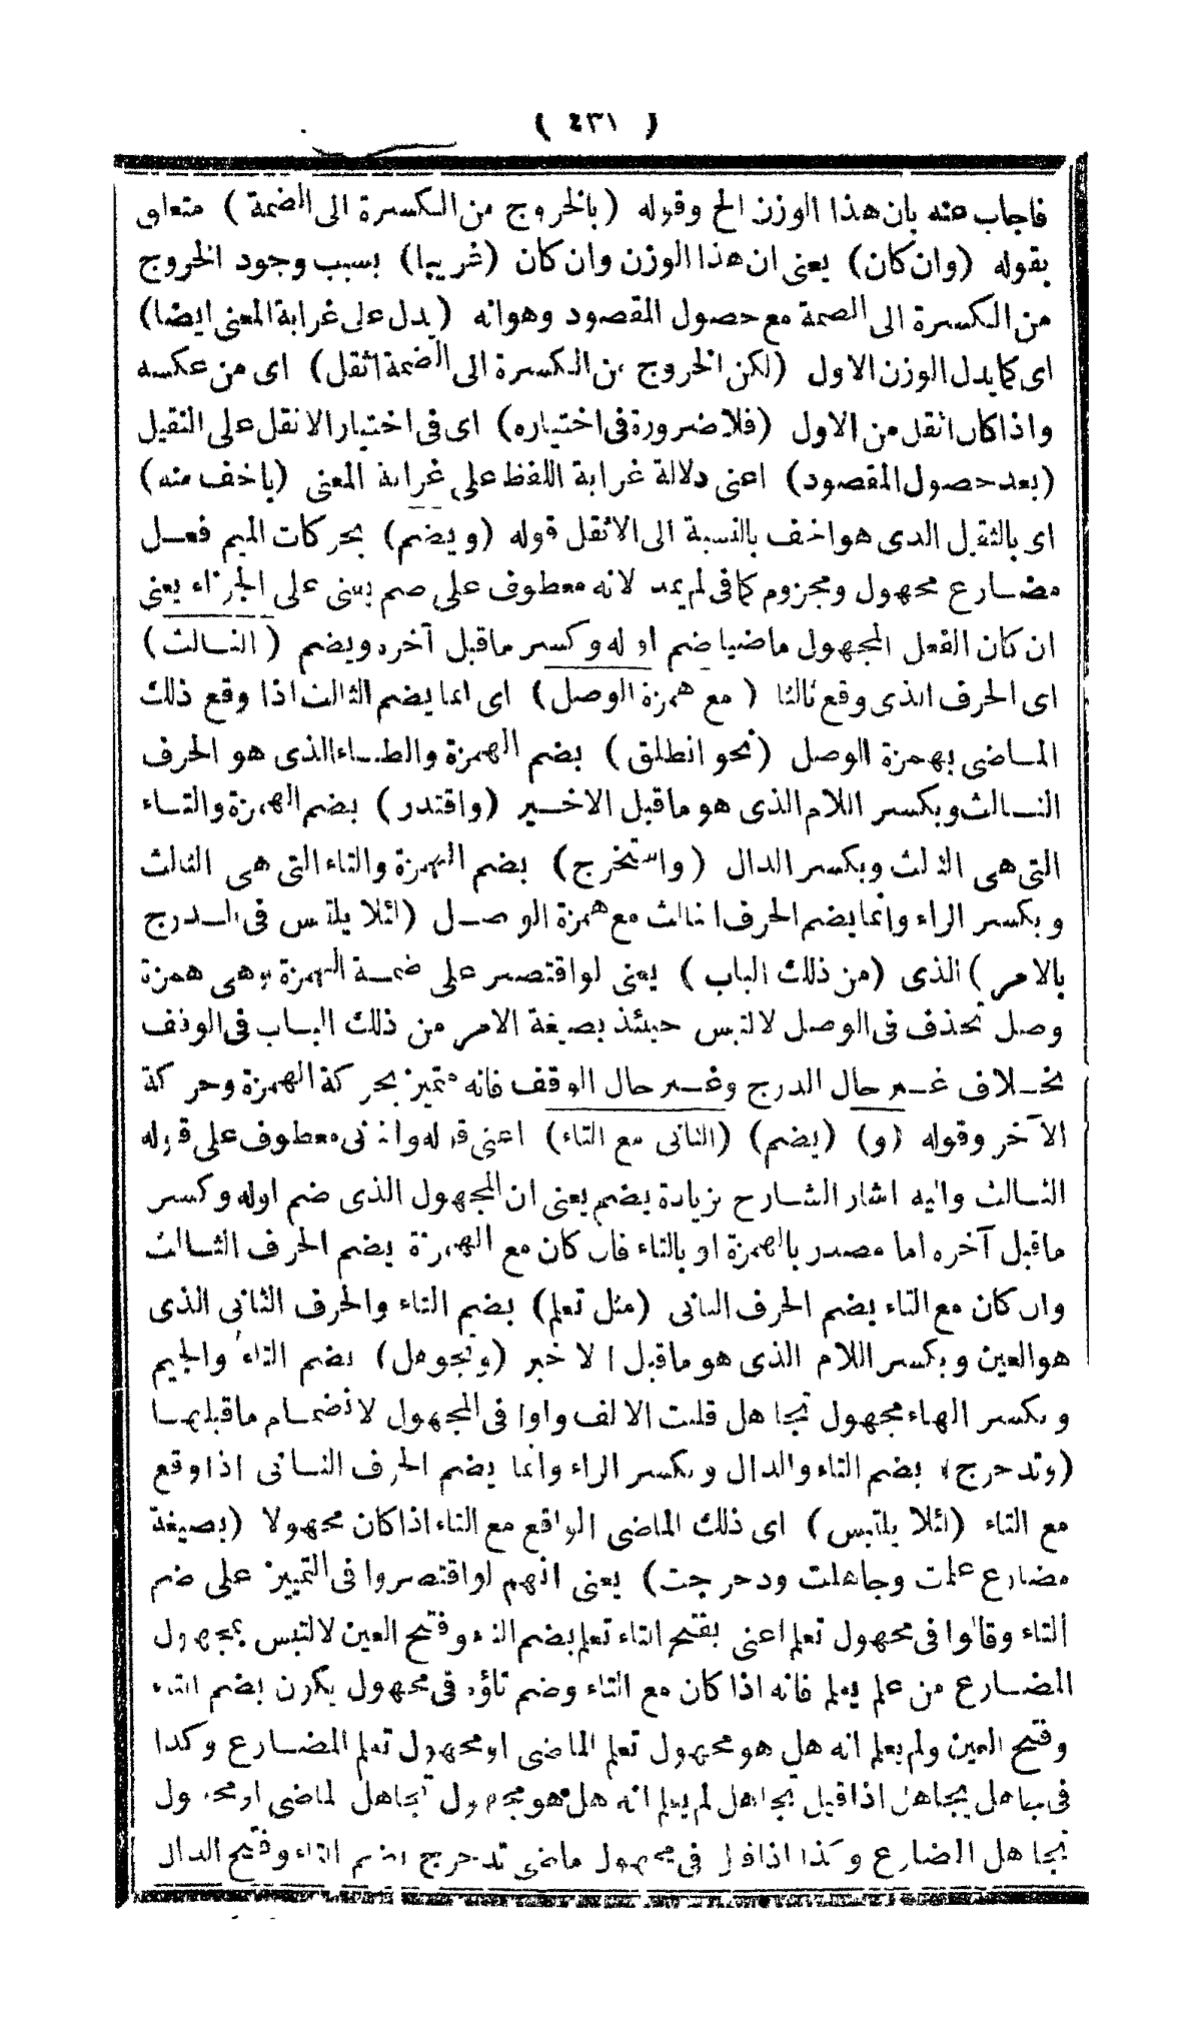 ( ٤٣١ )
فاجاب عنه بان هذا الوزن الخ وقوله (بالخروج من الكسرة الى الضمة) متعلق
بقوله (وان كان) يعنى ان هذا الوزن وان كان (غريبا) بسبب وجود الخروج
من الكسرة الى الضمة مع حصول المقصود وهوانه (يدل على غرابة المعنى ايضا)
اى كما يدل الوزن الاول (لكن الخروج من الكسرة الى الضمة اثقل) اى من عكسه
واذا كان اثقل من الاول (فلا ضرورة فى اختياره) اى فى اختيار الاثقل على الثقيل
(بعد حصول المقصود) اعنى دلالة غرابة اللفظ على غرابة المعنى (باخف منه)
اى بالثقيل الذى هو اخف بالنسبة الى الاثقل قوله (ويضم) بحركات الميم فعل
مضارع مجهول ومجزوم كما فى لم يمد لانه معطوف على ضم يبنى على الجزاء يعنى
ان كان الفعل المجهول ماضيا ضم اوله وكسر ماقبل آخره ويضم (الثالث)
اى الحرف الذى وقع ثالثا (مع همزة الوصل) اى انما يضم الثالث اذا وقع ذلك
الماضى بهمزة الوصل (نحو انطلق) بضم الهمزة والطاء الذى هو الحرف
الثالث وبكسر اللام الذى هو ماقبل الاخير (واقتدر) بضم الهمزة والتاء
التى هى الثالث وبكسر الدال (واستخرج) بضم الهمزة والتاء التى هى الثالث
وبكسر الراء وانما يضم الحرف الثالث مع همزة الوصل (لئلا يلتبس فى الدرج
بالامر) الذى (من ذلك الباب) يعنى لو اقتصر على ضمة الهمزة وهى همزة
وصل تحذف فى الوصل لالتبس حينئذ بصيغة الامر من ذلك الباب فى الوقف
بخلاف غير حال الدرج وغير حال الوقف فانه متميز بحركة الهمزة وحركة
الآخر وقوله (و) (يضم) (الثانى مع التاء) اعنى قوله والثانى معطوف على قوله
الثالث واليه اشار الشارح بزيادة يضم يعنى ان المجهول الذى ضم اوله وكسر
ماقبل آخره اما مصدر بالهمزة او بالتاء فان كان مع الهمزة يضم الحرف الثالث
وان كان مع التاء يضم الحرف الثانى (مثل تعلم) بضم التاء والحرف الثانى الذى
هو العين وبكسر اللام الذى هو ماقبل الاخير (وتجوهل) بضم التاء والجيم
وبكسر الهاء مجهول تجاهل قلبت الالف واوا فى المجهول لانضمام ماقبلها
(وتدحرج) بضم التاء والدال وبكسر الراء وانما يضم الحرف الثانى اذا وقع
مع التاء (لئلا يلتبس) اى ذلك الماضى الواقع مع التاء اذا كان مجهولا (بصيغة
مضارع علمت وجاهلت ودحرجت) يعنى انهم لو اقتصروا فى التمييز على ضم
التاء وقالوا فى مجهول تعلم اعنى بفتح التاء تعلم بضم التاء وفتح العين لالتبس بمجهول
المضارع من علم يعلم فانه اذا كان مع التاء وضم تاؤه فى مجهول يكون بضم التاء
وفتح العين ولم يعلم انه هل هو مجهول تعلم الماضى او مجهول تعلم المضارع وكذا
فى جاهل يجاهل اذا قيل تجاهل لم يعلم انه هل هو مجهول تجاهل الماضى او مجهول
تجاهل المضارع وكذا اذا قيل فى مجهول ماضى تدحرج بضم التاء وفتح الدال